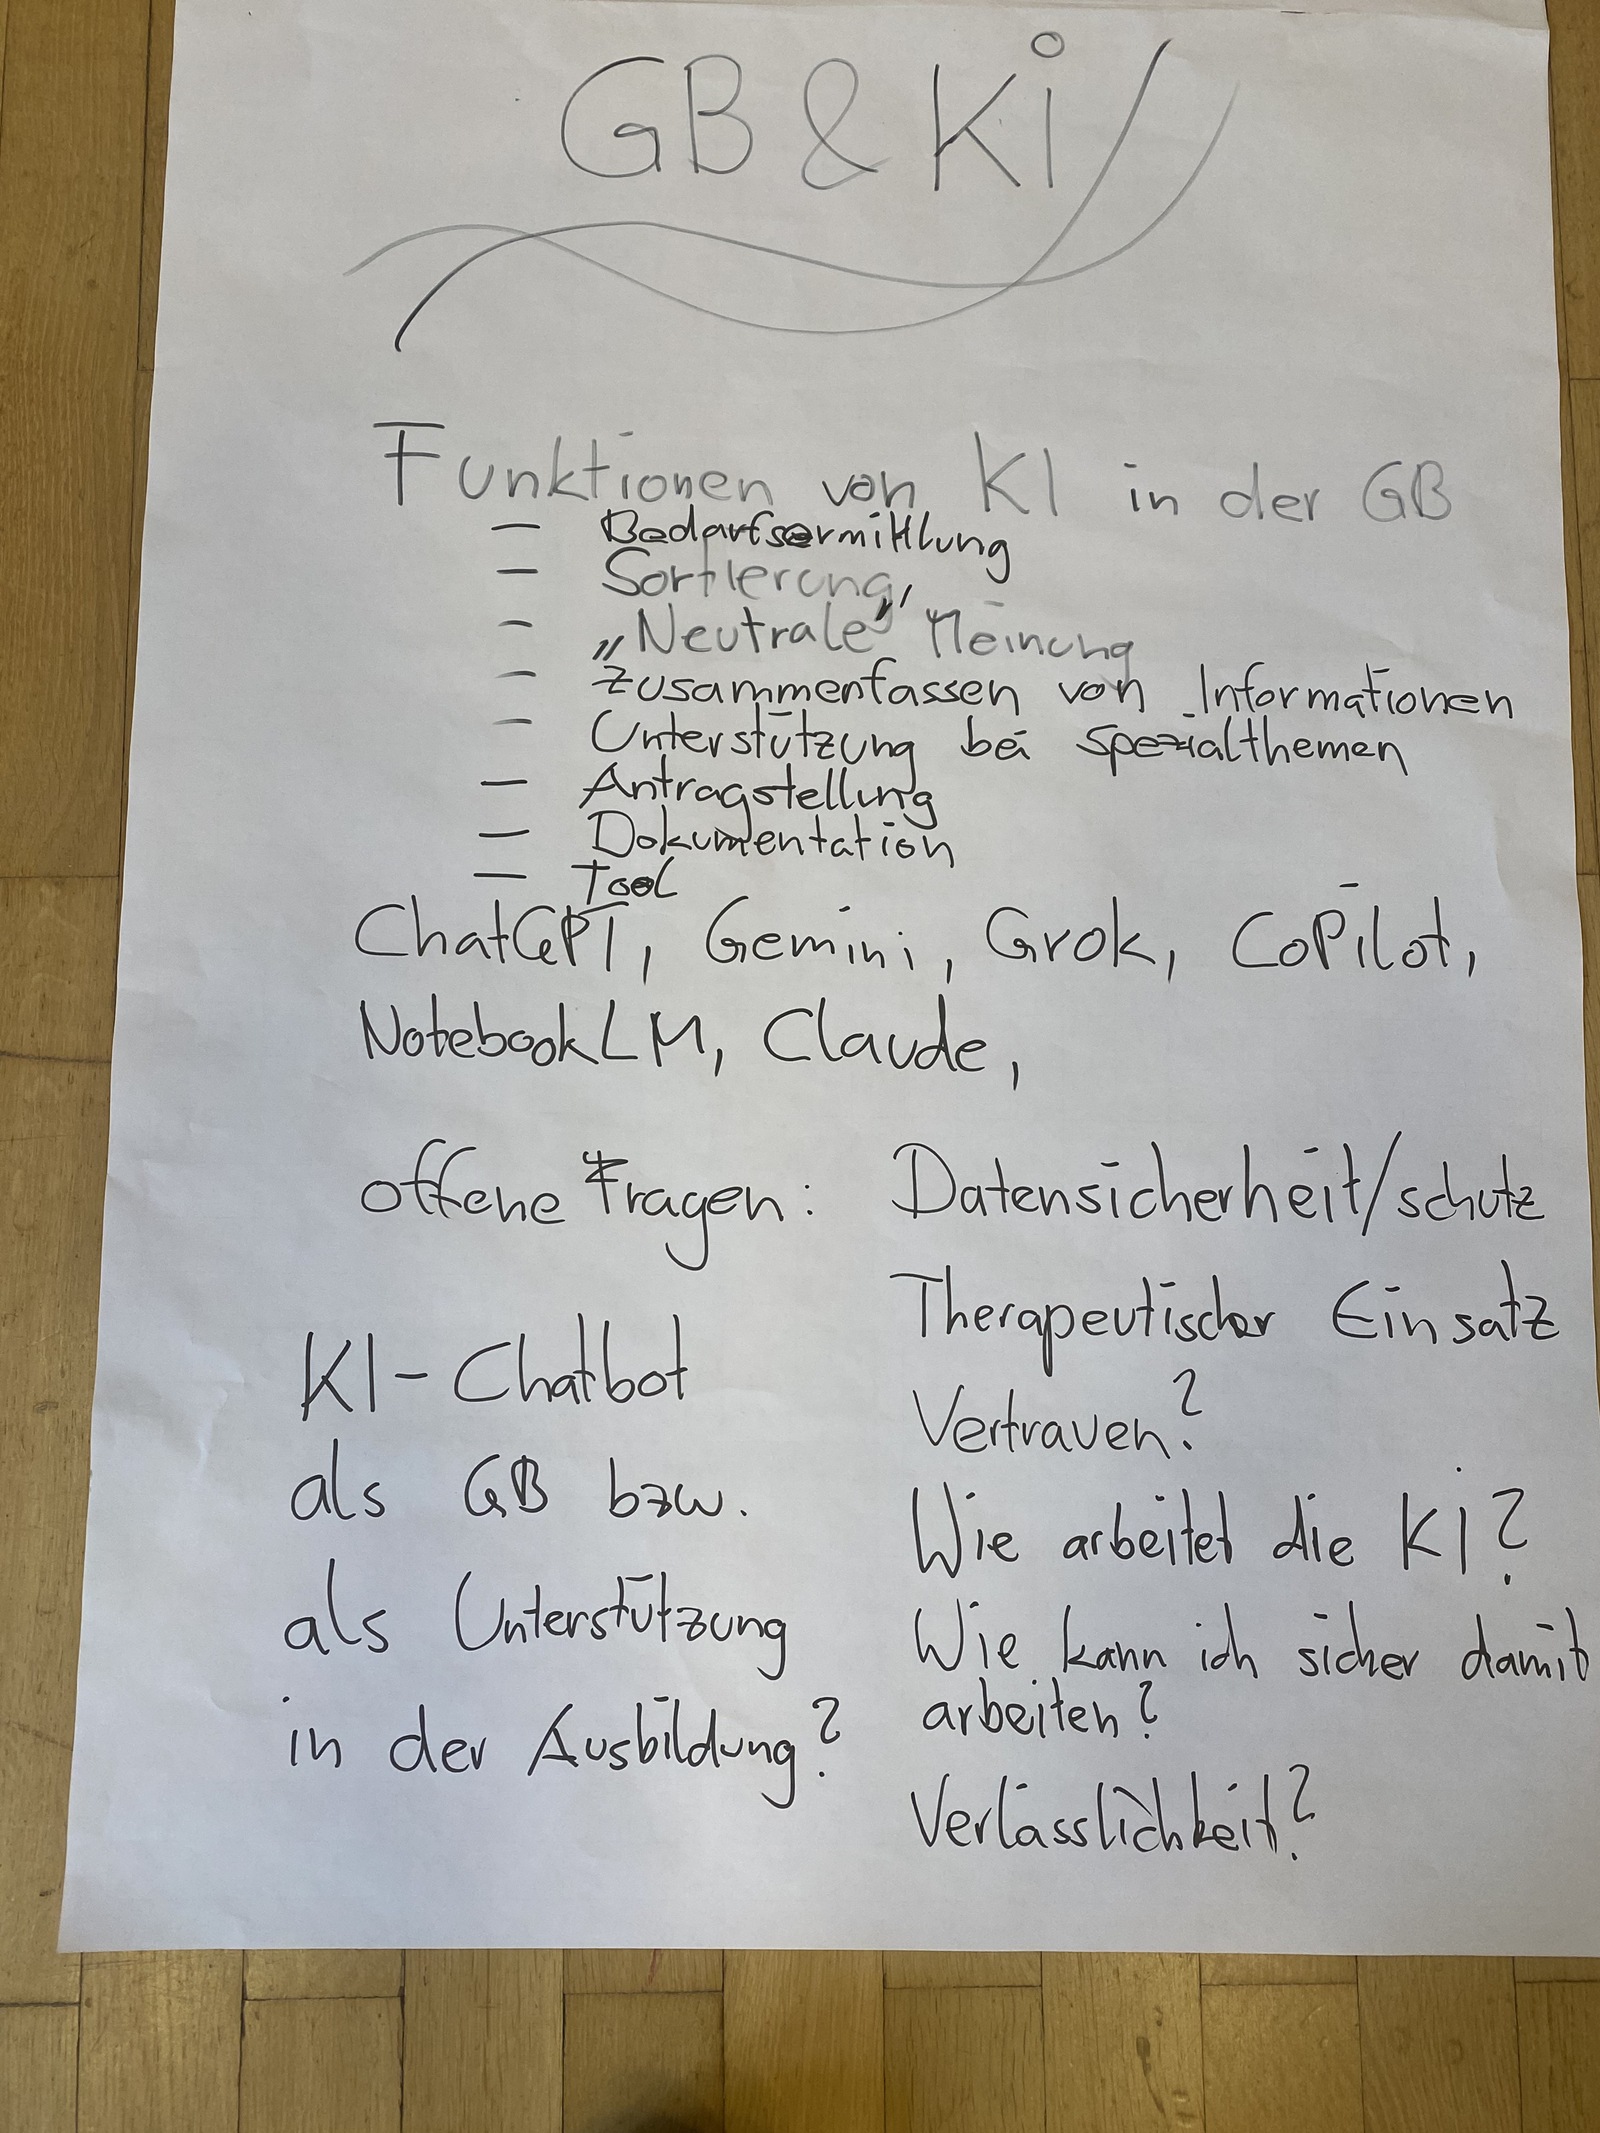 GB & Ki
Funktionen von KI in der GB
– Bedarfsermittlung
– Sortierung
– „Neutrale" Meinung
– Zusammenfassen von Informationen
– Unterstützung bei Spezialthemen
– Antragstellung
– Dokumentation
– Tool
ChatGPT, Gemini, Grok, CoPilot,
NotebookLM, Claude,
offene Fragen: Datensicherheit/schutz
Therapeutischer Einsatz
Vertrauen?
Wie arbeitet die KI?
Wie kann ich sicher damit
arbeiten?
Verlässlichkeit?
KI-Chatbot
als GB bzw.
als Unterstützung
in der Ausbildung?